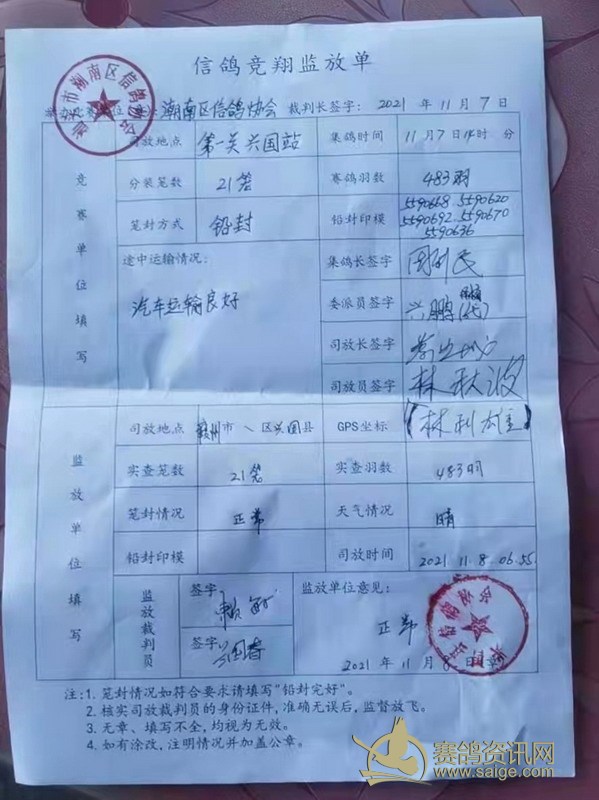 信鸽竞翔监放单
潮南区信鸽协会 裁判长签字: 2021 年 11 月 7 日
竞赛单位填写
司放地点 第一关兴国站 集鸽时间 11月7日 时 分
分装笼数 21笼 赛鸽羽数 483羽
笼封方式 铅封 铅封印模 5590668 5590620
5590692 5590670
5590636
途中运输情况: 集鸽长签字
汽车运输良好 委派员签字 兴鹏(代)
司放长签字
司放员签字 林秋波
监放单位填写
司放地点 赣州市 \ 区兴国县 GPS坐标 (林利雄)
实查笼数 21笼 实查羽数 483羽
笼封情况 正常 天气情况 晴
铅封印模 司放时间 2021 11.8 06.55
监放裁判员 签字 监放单位意见:
签字 正常
2021 年 11 月 8 日 章
注:1. 笼封情况如符合要求请填写"铅封完好"。
2. 核实司放裁判员的身份证件,准确无误后,监督放飞。
3. 无章、填写不全,均视为无效。
4. 如有涂改,注明情况并加盖公章。
赛鸽资讯网
www.saige.com